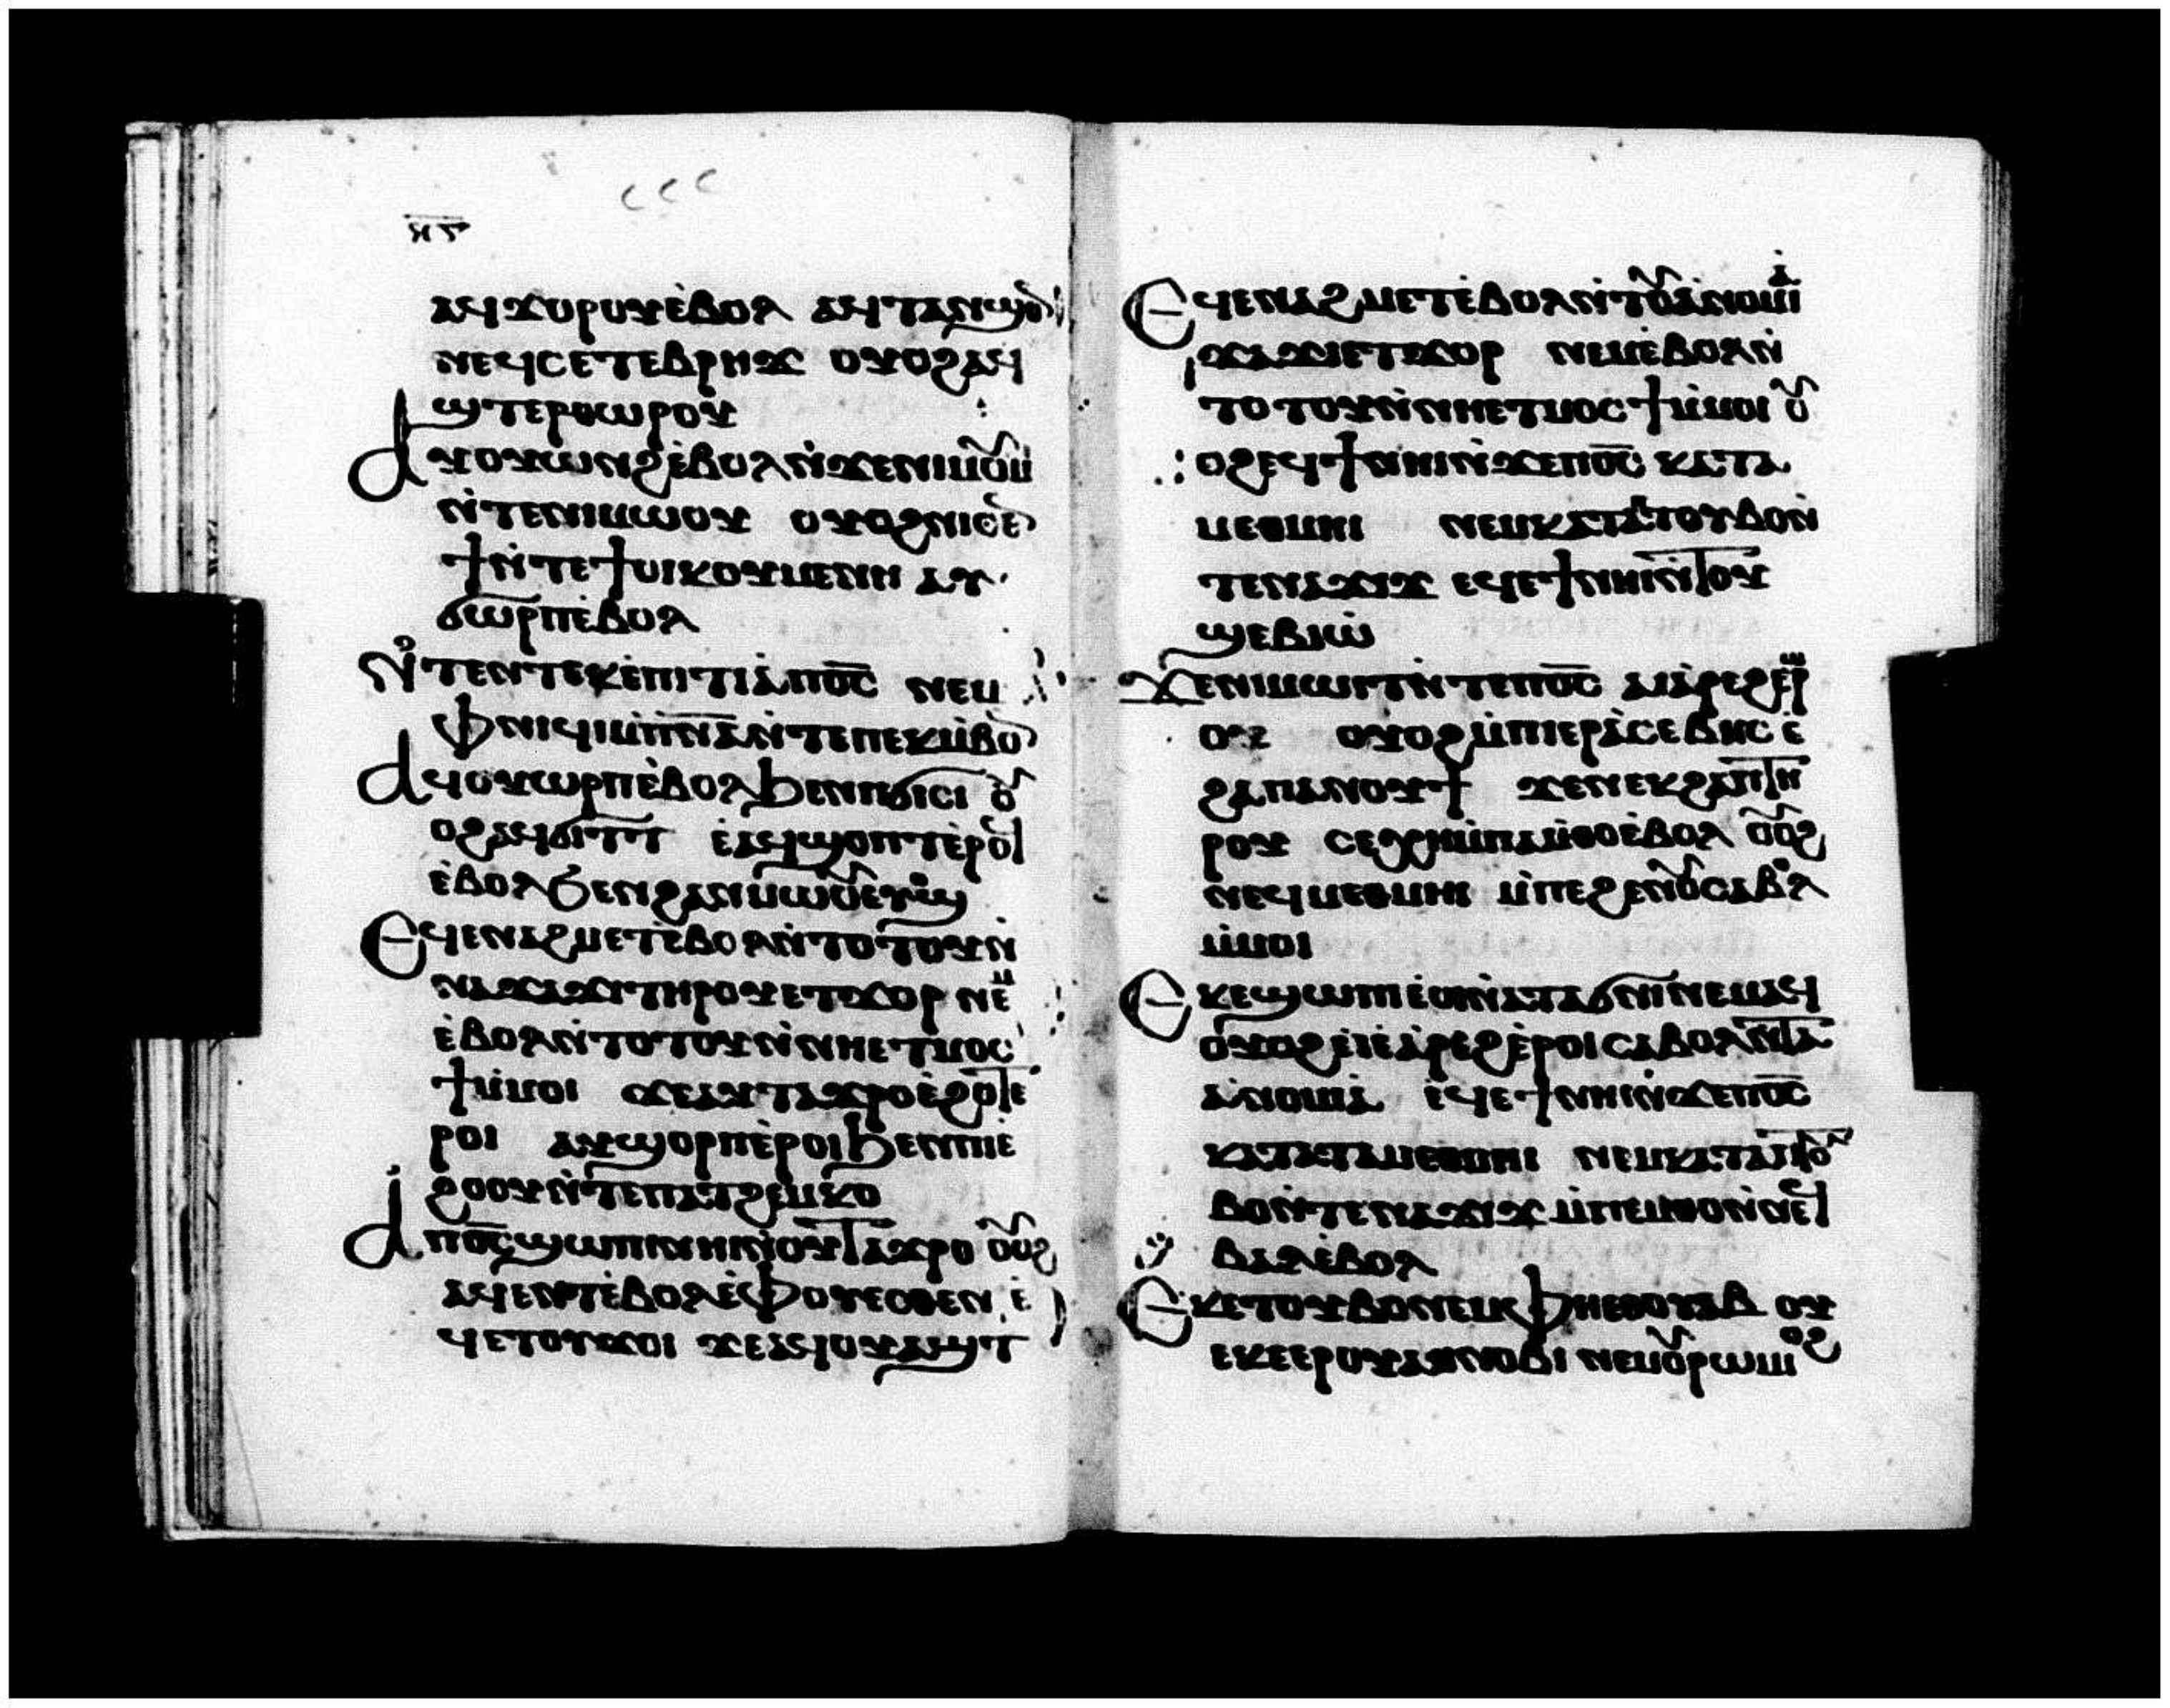 ⲁϥϫⲟⲣⲟⲩⲉ̀ⲃⲟⲗ ⲁϥⲧⲁⲛϣⲟ
ⲛⲉϥⲥⲉⲧⲉⲃⲣⲏϫ ⲟⲩⲟϩⲁϥ
ϣⲧⲉⲣⲑⲱⲣⲟⲩ
ⲁⲩⲟⲩⲱⲛϩⲉ̀ⲃⲟⲗⲛ̀ϫⲉⲛⲓⲙⲟⲩⲙⲓ
ⲛ̀ⲧⲉⲛⲓⲙⲱⲟⲩ ⲟⲩⲟϩⲛⲓⲥⲉ
ϯⲛ̀ⲧⲉϯⲟⲓⲕⲟⲩⲙⲉⲛⲏ ⲁⲩ
ϭⲱⲣⲡⲉ̀ⲃⲟⲗ
ⲛ̀ⲧⲉⲛⲧⲉⲕⲉ̀ⲡⲓⲧⲓⲙⲓⲁ̀ⲡⲟ̅ⲥ̅ ⲛⲉⲙ
ⲫⲛⲓϥⲓⲙ̀ⲡ̅ⲛ̅ⲁ̅ⲛ̀ⲧⲉⲡⲉⲕⲙ̀ⲃⲟ
ⲁϥⲟⲩⲱⲣⲡⲉ̀ⲃⲟⲗϧⲉⲛⲡϭⲓⲥⲓ ⲟⲩ
ⲟϩⲁϥϭⲓⲧⲧ ⲉ̀ⲁϥϣⲟⲡⲧⲉ̀ⲣⲟϥ
ⲉ̀ⲃⲟⲗϧⲉⲛϩⲁⲛⲙⲱⲟⲩⲉⲩⲟϣ
ⲉϥⲉⲛⲁϩⲙⲉⲧⲉ̀ⲃⲟⲗⲛ̀ⲧⲟⲧⲟⲩⲛ̀
ⲛⲁϫⲁϫⲓⲧⲏⲣⲟⲩⲉⲧϫⲟⲣ ⲛⲉⲙ
ⲉ̀ⲃⲟⲗⲛ̀ⲧⲟⲧⲟⲩⲛ̀ⲛⲏⲉⲧⲙⲟⲥ
ϯⲙ̀ⲙⲟⲓ ϫⲉⲁⲩⲧⲁϫⲣⲟⲉ̀ϩⲟⲧⲉ
ⲣⲟⲓ ⲁⲩϣⲟⲣⲡⲉ̀ⲣⲟⲓϧⲉⲛⲡⲓⲉ̀
ϩⲟⲟⲩⲛ̀ⲧⲉⲡⲁⲧϩⲉⲙⲕⲟ
ⲁⲡⲟ̅ⲥ̅ϣⲱⲡⲓⲛⲏⲓⲛ̀ⲟⲩⲧⲁϫⲣⲟ ⲟⲩⲟϩ
ⲁϥⲉⲛⲧⲉ̀ⲃⲟⲗⲉ̀ⲫⲟⲩⲉⲥⲑⲉⲛ ⲉ̀
ϥⲉⲧⲟⲩϫⲟⲓ ϫⲉⲁϥⲟⲩⲁϣⲧ
ⲉϥⲉⲛⲁϩⲙⲉⲧⲉ̀ⲃⲟⲗⲛ̀ⲧⲟⲩⲁ̀ⲛⲟⲙⲓⲁ̀
ϫⲁϫⲓⲉⲧϫⲟⲣ ⲛⲉⲙⲉ̀ⲃⲟⲗⲛ̀
ⲧⲟⲧⲟⲩⲛ̀ⲛⲏⲉⲧⲙⲟⲥϯⲙ̀ⲙⲟⲓ ⲟⲩ
ⲟϩⲉϥϯⲛⲏⲓⲛ̀ϫⲉⲡⲟ̅ⲥ̅ ⲕⲁⲧⲁ
ⲙⲉⲑⲙⲏⲓ ⲛⲉⲙⲕⲁⲧⲁⲡⲧⲟⲩⲃⲟⲛ̀
ⲧⲉⲛⲁϫⲓϫ ⲉϥⲉϯⲛⲏⲓⲛ̀ⲧⲟⲩ
ϣⲉⲃⲓⲱ̀
ϫⲉⲛⲓⲙⲱⲓⲧⲛ̀ⲧⲉⲡⲟ̅ⲥ̅ ⲁⲓⲁ̀ⲣⲉϩⲉ̀ⲣⲱ
ⲟⲩ ⲟⲩⲟϩⲙ̀ⲡⲓⲉⲣⲁ̀ⲥⲉⲃⲏⲥ ⲉ̀
ϩⲁⲡⲁⲛⲟⲩϯ ϫⲉⲛⲉⲕϩⲁⲡⲧⲏ
ⲣⲟⲩ ⲥⲉⲭⲏⲙ̀ⲡⲁⲙ̀ⲑⲟⲉ̀ⲃⲟⲗ ⲟⲩⲟϩ
ⲛⲉϥⲙⲉⲑⲙⲏⲓ ⲙ̀ⲡⲉϩⲉⲛⲟⲩⲥⲁⲃⲟⲗ
ⲙ̀ⲙⲟⲓ
ⲉⲕⲉϣⲱⲡⲓⲉ̀ⲟⲓⲛ̀ⲁⲧⲁϭⲛⲓⲛⲉⲙⲁϥ
ⲟⲩⲟϩⲉⲓⲉ̀ⲁ̀ⲣⲉϩⲉ̀ⲣⲟⲓⲥⲁⲃⲟⲗⲛ̀ⲧⲁ
ⲁ̀ⲛⲟⲙⲓⲁ̀ ⲉϥⲉϯⲛⲏⲓⲛ̀ϫⲉⲡⲟ̅ⲥ̅
ⲕⲁⲧⲁⲧⲁⲙⲉⲑⲙⲏⲓ ⲛⲉⲙⲕⲁⲧⲁⲡⲧⲟⲩ
ⲃⲟⲛ̀ⲧⲉⲛⲁϫⲓϫ ⲙ̀ⲡⲉⲙⲑⲟⲛ̀ⲛⲉϥ
ⲃⲁⲗⲉ̀ⲃⲟⲗ
ⲉⲕⲉⲧⲟⲩⲃⲟⲛⲉⲙⲫⲏⲉⲑⲟⲩⲁⲃ ⲟⲩ
ⲉⲕⲉⲉⲣⲟⲩⲁⲧⲛⲟⲃⲓ ⲛⲉⲙⲟⲩⲣⲱⲙⲓ ⲟϩ